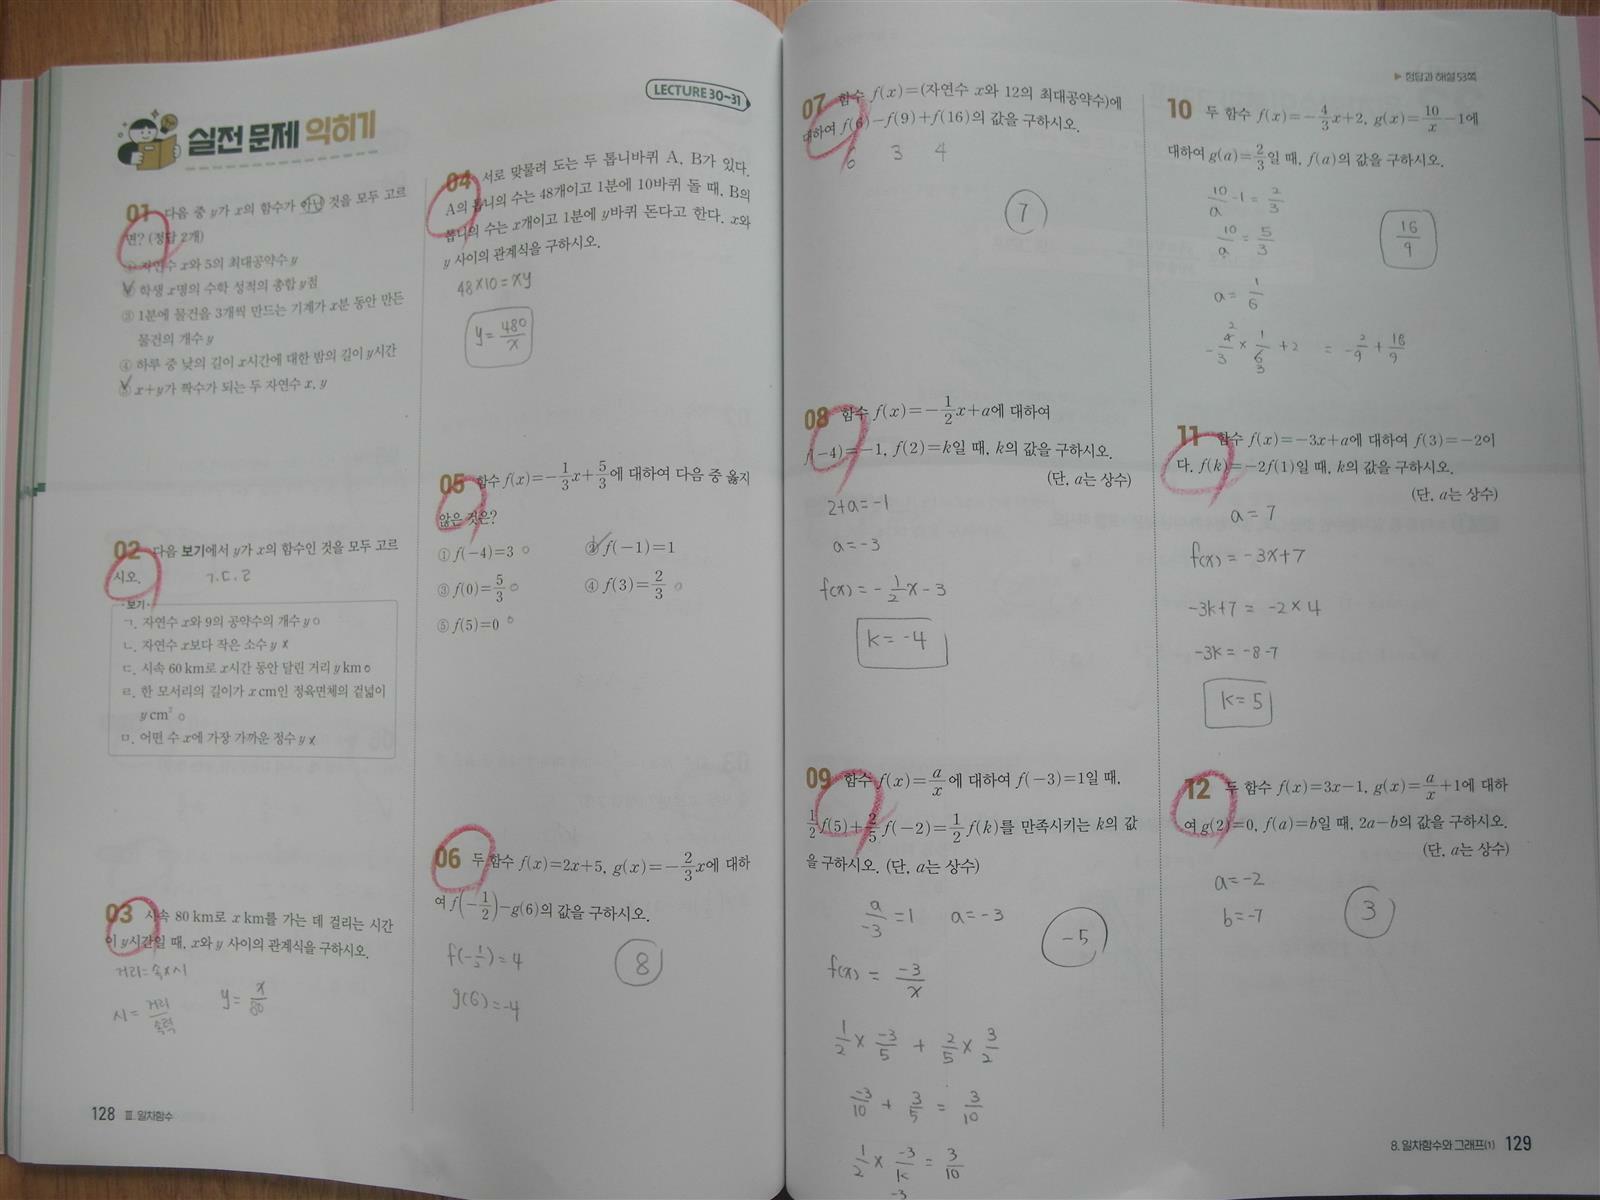 LECTURE 30~31
실전 문제 익히기
01 다음 중 y가 x의 함수가 아닌 것을 모두 고르
면? (정답 2개)
① 자연수 x와 5의 최대공약수 y
② 학생 x명의 수학 성적의 총합 y점
③ 1분에 물건을 3개씩 만드는 기계가 x분 동안 만든
물건의 개수 y
④ 하루 중 낮의 길이 x시간에 대한 밤의 길이 y시간
⑤ x+y가 짝수가 되는 두 자연수 x, y
02 다음 보기에서 y가 x의 함수인 것을 모두 고르
시오. ㄱ.ㄷ.ㄹ
보기
ㄱ. 자연수 x와 9의 공약수의 개수 y ○
ㄴ. 자연수 x보다 작은 소수 y ×
ㄷ. 시속 60 km로 x시간 동안 달린 거리 y km ○
ㄹ. 한 모서리의 길이가 x cm인 정육면체의 겉넓이
y cm² ○
ㅁ. 어떤 수 x에 가장 가까운 정수 y ×
03 시속 80 km로 x km를 가는 데 걸리는 시간
이 y시간일 때, x와 y 사이의 관계식을 구하시오.
거리=속×시
시=거리/속력 y=x/80
128 Ⅲ. 일차함수
04 서로 맞물려 도는 두 톱니바퀴 A, B가 있다.
A의 톱니의 수는 48개이고 1분에 10바퀴 돌 때, B의
톱니의 수는 x개이고 1분에 y바퀴 돈다고 한다. x와
y 사이의 관계식을 구하시오.
48×10=xy
y=480/x
05 함수 f(x)=-1/3x+5/3에 대하여 다음 중 옳지
않은 것은?
① f(-4)=3 ○ ② f(-1)=1
③ f(0)=5/3 ○ ④ f(3)=2/3 ○
⑤ f(5)=0 ○
06 두 함수 f(x)=2x+5, g(x)=-2/3x에 대하
여 f(-1/2)-g(6)의 값을 구하시오.
f(-1/2)=4 8
g(6)=-4
07 함수 f(x)=(자연수 x와 12의 최대공약수)에
대하여 f(6)-f(9)+f(16)의 값을 구하시오.
6 3 4
7
08 함수 f(x)=-1/2x+a에 대하여
f(-4)=-1, f(2)=k일 때, k의 값을 구하시오.
(단, a는 상수)
2+a=-1
a=-3
f(x)=-1/2x-3
k=-4
09 함수 f(x)=a/x에 대하여 f(-3)=1일 때,
1/2f(5)+2/5f(-2)=1/2f(k)를 만족시키는 k의 값
을 구하시오. (단, a는 상수)
a/-3=1 a=-3 -5
f(x)=-3/x
1/2×-3/5+2/5×3/2
-3/10+3/5=3/10
1/2×-3/k=3/10
-3
▶ 정답과 해설 53쪽
10 두 함수 f(x)=-4/3x+2, g(x)=10/x-1에
대하여 g(a)=2/3일 때, f(a)의 값을 구하시오.
10/a-1=2/3
10/a=5/3 16/9
a=1/6
-4/3×1/6+2 =-2/9+18/9
2
3
11 함수 f(x)=-3x+a에 대하여 f(3)=-2이
다. f(k)=-2f(1)일 때, k의 값을 구하시오.
(단, a는 상수)
a=7
f(x)=-3x+7
-3k+7=-2×4
-3k=-8-7
k=5
12 두 함수 f(x)=3x-1, g(x)=a/x+1에 대하
여 g(2)=0, f(a)=b일 때, 2a-b의 값을 구하시오.
(단, a는 상수)
a=-2
b=-7 3
8. 일차함수와 그래프(1) 129